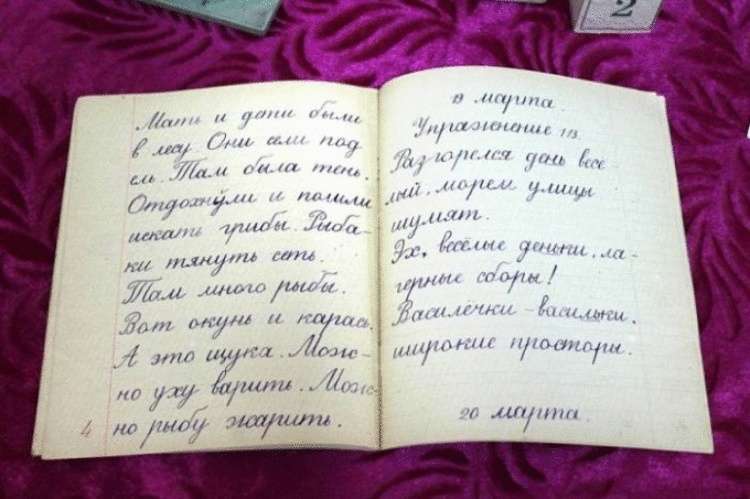 Мать и дети были
в лесу. Они сели под
ель. Там была тень.
Отдохнули и пошли
искать грибы. Рыба-
ки тянуть сеть.
Там много рыбы.
Вот окунь и карась.
А это щука. Мож-
но уху варить. Мож-
но рыбу жарить.
4
19 марта.
Упражнение 113.
Разгорелся день весё-
лый, морем улицы
шумят.
Эх, весёлые деньки, ла-
герные сборы!
Василёчки-васильки,
широкие просторы.
20 марта.
2